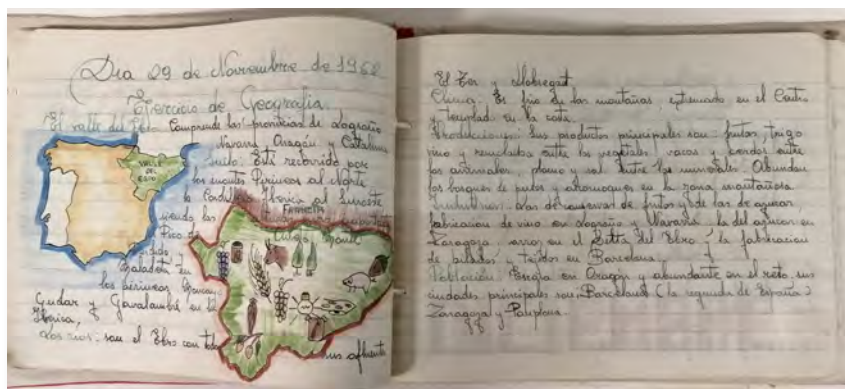 Dia 29 de Noviembre de 1962
Ejercicio de Geografía
El valle del Ebro Comprende las provincias de Logroño
Navarra Aragón y Cataluña
Suelo: Está recorrido por
los montes Pirineos al Norte
la Cordillera Ibérica al Suroeste
siendo las
Pico de
Maladeta en
los pirineos Moncayo
Gudar y Javalambre en la
Iberica,
Los rios: son el Ebro con todos
sus afluentes
VALLE DEL EBRO
FRANCIA
El Ter y Llobregat
Clima: Es frio de las montañas, extremado en el Centro
y templado en la costa.
Producciones: Sus productos principales son: frutas, trigo
vino y remolacha entre los vegetales vacas y cerdos entre
los animales, plomo y sal entre los minerales. Abundan
los bosques de pinos y en la zona montañosa
Industrias: Las de conservas de frutos y de las de azucar,
fabricacion de vino en Logroño y Navarra, la del azucar en
Zaragoza, arroz en el Delta del Ebro y la fabricacion
de hilados y tejidos en Barcelona.
Población: Escasa en Aragón y abundante en el resto. sus
ciudades principales son: Barcelona (la segunda de España)
Zaragoza y Pamplona.